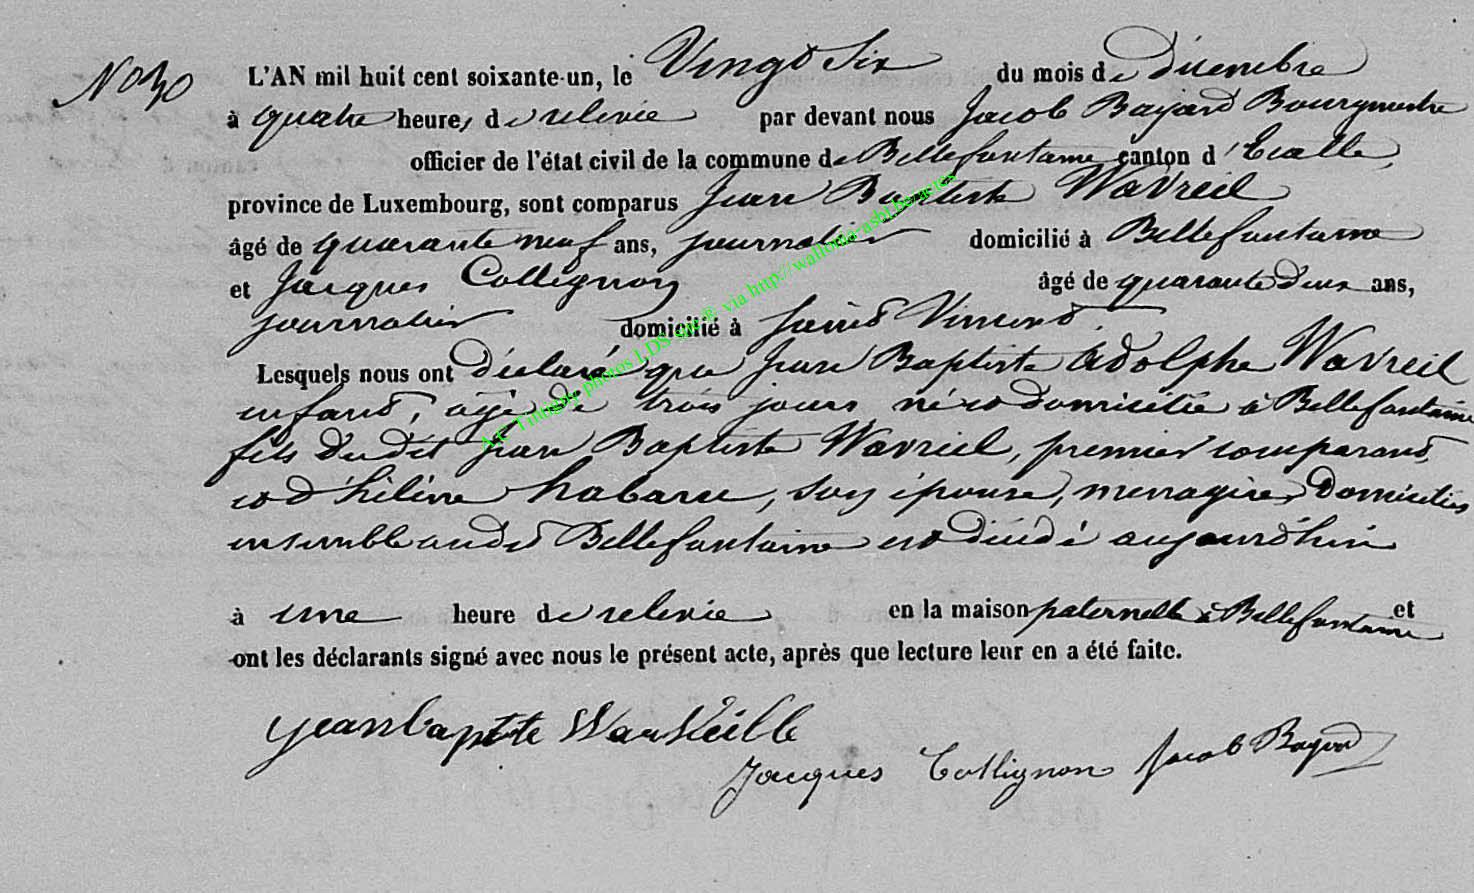 No 30
L'AN mil huit cent soixante-un, le Vingt Six du mois de décembre
à quatre heures de relevée par devant nous Jacob Bayard Bourgmestre
officier de l'état civil de la commune de Bellefontaine canton d'Etalle,
province de Luxembourg, sont comparus Jean Baptiste Wavreil
âgé de quarante neuf ans, journalier domicilié à Bellefontaine
et Jacques Collignon âgé de quarante deux ans,
journalier domicilié à Saint Vincent.
Lesquels nous ont déclaré que Jean Baptiste Adolphe Wavreil
enfant, agé de trois jours né et domicilié à Bellefontaine
fils dudit Jean Baptiste Wavreil, premier comparant,
et d'hélène habaru, son épouse, menagère, domiciliés
ensemble audit Bellefontaine est décédé aujourd'hui
à une heure de relevée en la maison paternelle à Bellefontaine et
ont les déclarants signé avec nous le présent acte, après que lecture leur en a été faite.
jean baptiste Wauveille
Jacques Collignon Jacob Bayard
via http://wallonia-asbl.be/actes